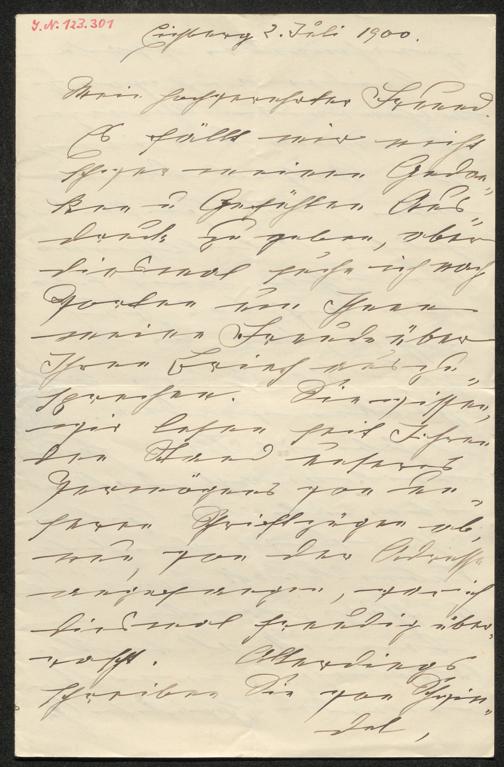 J.N. 123.301
Eichberg 2. Juli 1900.
Mein hochverehrter Freund.
Es fällt mir nicht
schwer meinen Gedan-
ken u Gefühlen Aus-
druck zu geben, aber
diesmal suche ich nach
Worten um Ihnen
meine Freude über
Ihren Brief auszu-
sprechen. Sie wissen,
wir lesen seit Jahren
den Stand unseres
Vermögens von un-
seren Schriftzügen ab,
nun, von der Adresse
angefangen, war ich
diesmal freudig über-
rascht. Allerdings
schreiben Sie von Schwin-
del,